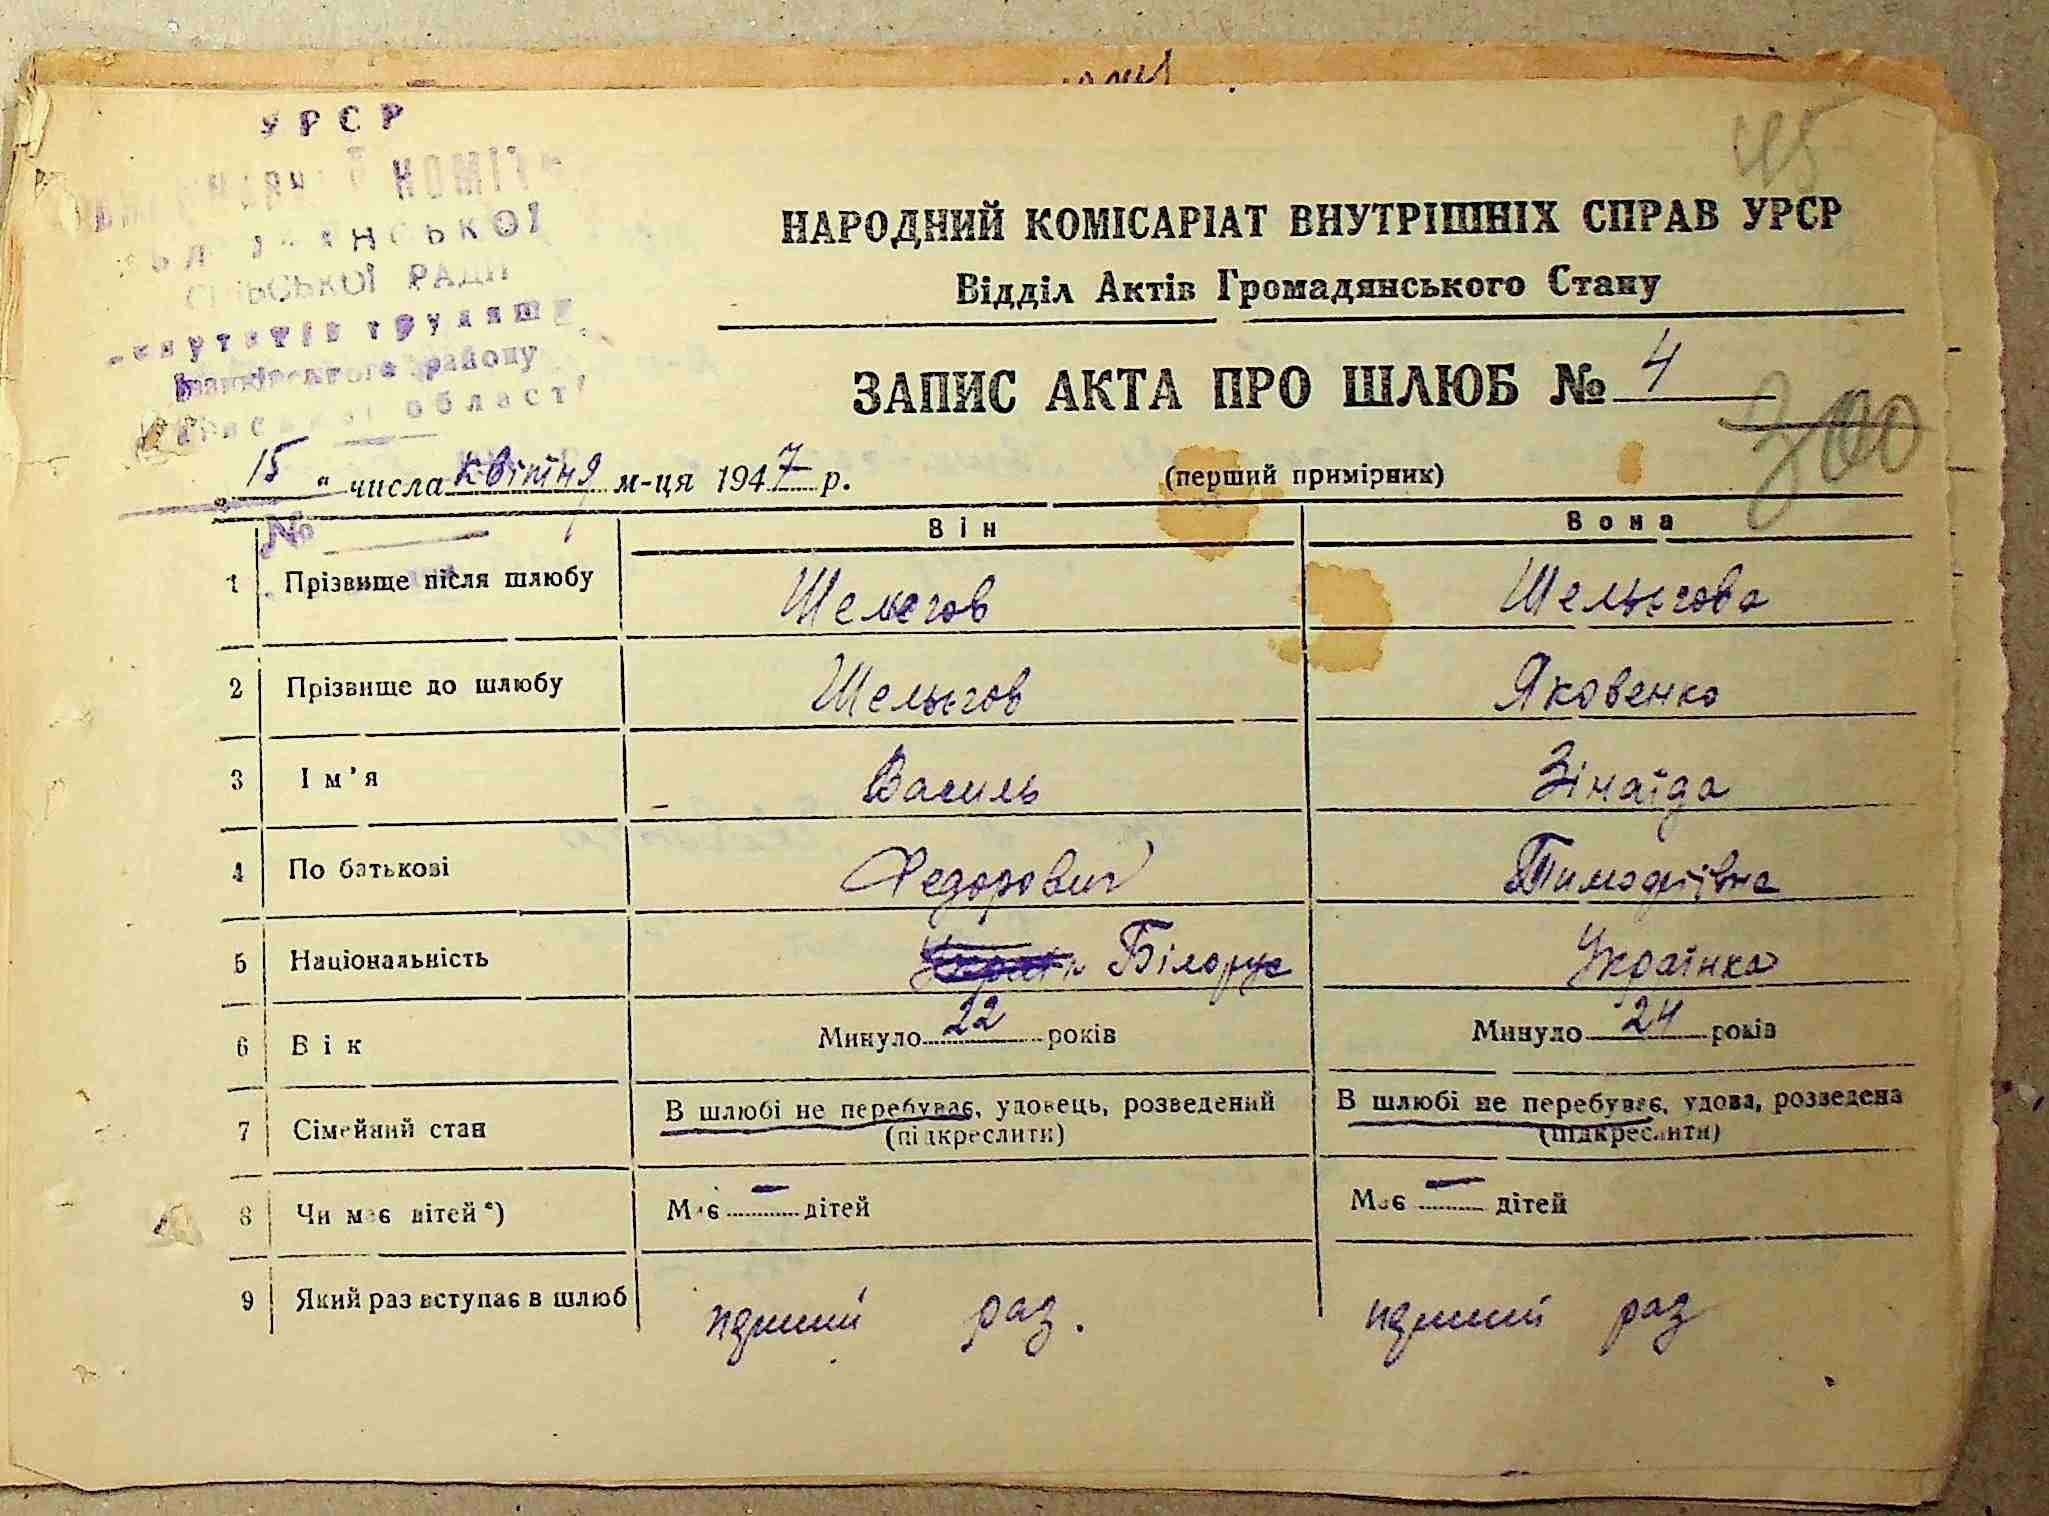 УРСР
СІЛЬСЬКОЇ РАДИ
Іванківського району
області
45
НАРОДНИЙ КОМІСАРІАТ ВНУТРІШНІХ СПРАВ УРСР
Відділ Актів Громадянського Стану
ЗАПИС АКТА ПРО ШЛЮБ № 4
„ 15 “ числа квітня м-ця 1947 р.
(перший примірник)
№
Він Вона
1 Прізвище після шлюбу Шельєгов Шельєгова
2 Прізвище до шлюбу Шельєгов Яковенко
3 Ім’я Василь Зінаїда
4 По батькові Федорович Тимофіївна
5 Національність Білорус Українка
6 Вік Минуло 22 років Минуло 24 років
7 Сімейний стан В шлюбі не перебуває, удовець, розведений (підкреслити) В шлюбі не перебуває, удова, розведена (підкреслити)
8 Чи має дітей*) Має — дітей Має — дітей
9 Який раз вступає в шлюб перший раз. перший раз